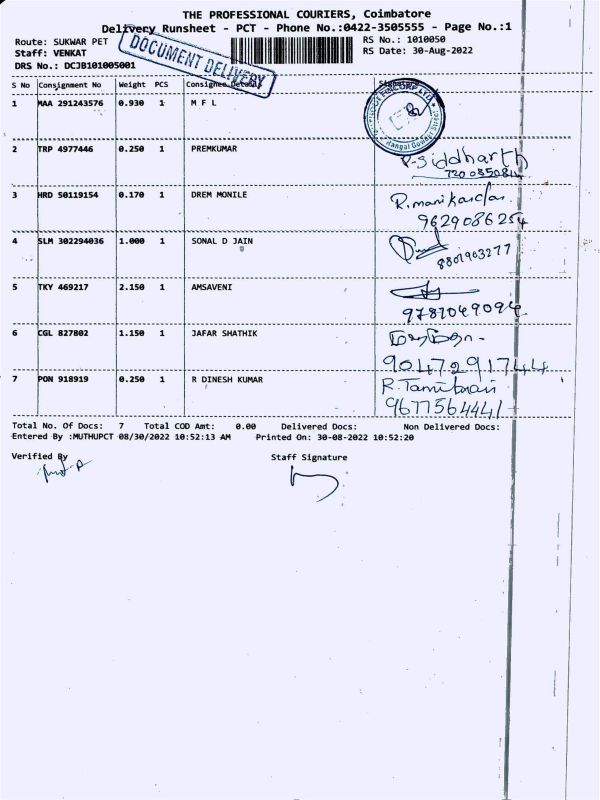 THE PROFESSIONAL COURIERS, Coimbatore
Delivery Runsheet - PCT - Phone No.:0422-3505555 - Page No.:1
Route: SUKWAR PET
RS No.: 1010050
Staff: VENKAT
RS Date: 30-Aug-2022
DRS No.: DCJB101005001
DOCUMENT DELIVERY
S No Consignment No Weight PCS Consignee Details Signature
1 MAA 291243576 0.930 1 M F L
2 TRP 4977446 0.250 1 PREMKUMAR
P. Siddharth
3 HRD 50119154 0.170 1 DREM MONILE
R. manikandan
9629086254
4 SLM 302294036 1.000 1 SONAL D JAIN
8801903277
5 TKY 469217 2.150 1 AMSAVENI
6 CGL 827802 1.150 1 JAFAR SHATHIK
9047291744
7 PON 918919 0.250 1 R DINESH KUMAR
9677564441
Total No. Of Docs: 7 Total COD Amt: 0.00 Delivered Docs: Non Delivered Docs:
Entered By :MUTHUPCT 08/30/2022 10:52:13 AM Printed On: 30-08-2022 10:52:20
Verified By Staff Signature